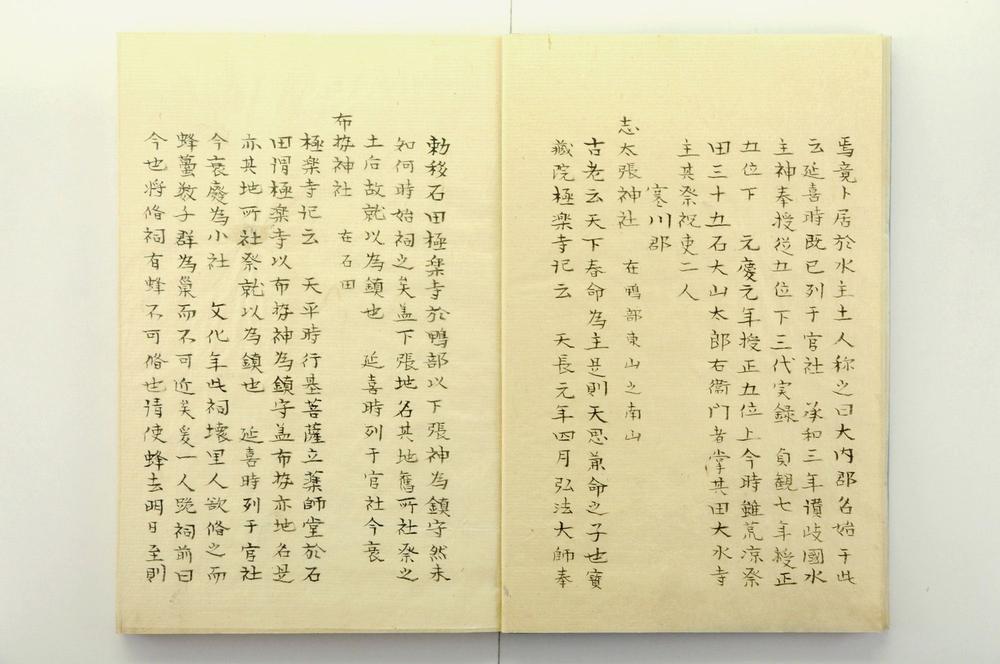 焉竟卜居於水主土人称之曰大内郡名始于此
云延喜時既已列于官社　承和三年讃岐國水
主神奉授從五位下三代実録　貞観七年授正
五位下　元慶元年授正五位上今時雖荒凉祭
田三十五石大山太郎右衛門者掌其田大水寺
主其祭祝吏二人
寒川郡
志太張神社　在鴨部東山之南山
古老云天下春命為主是則天思兼命之子也寳
蔵院極楽寺记云　天長元年四月弘法大師奉
勅移石田極楽寺於鴨部以下張神為鎮守然未
知何時始祠之矣盖下張地名其地舊所社祭之
土后故就以為鎮也　延喜時列于官社今衰
布挍神社　在石田
極楽寺记云　天平時行基菩薩立薬師堂於石
田謂極楽寺以布挍神為鎮守盖布挍亦地名是
亦其地所社祭就以為鎮也　延喜時列于官社
今衰廢為小社　文化年此祠壊里人欲脩之而
蜂蠆数千群為巣而不可近矣爰一人跪祠前曰
今也将脩祠有蜂不可脩也请使蜂去明日至則